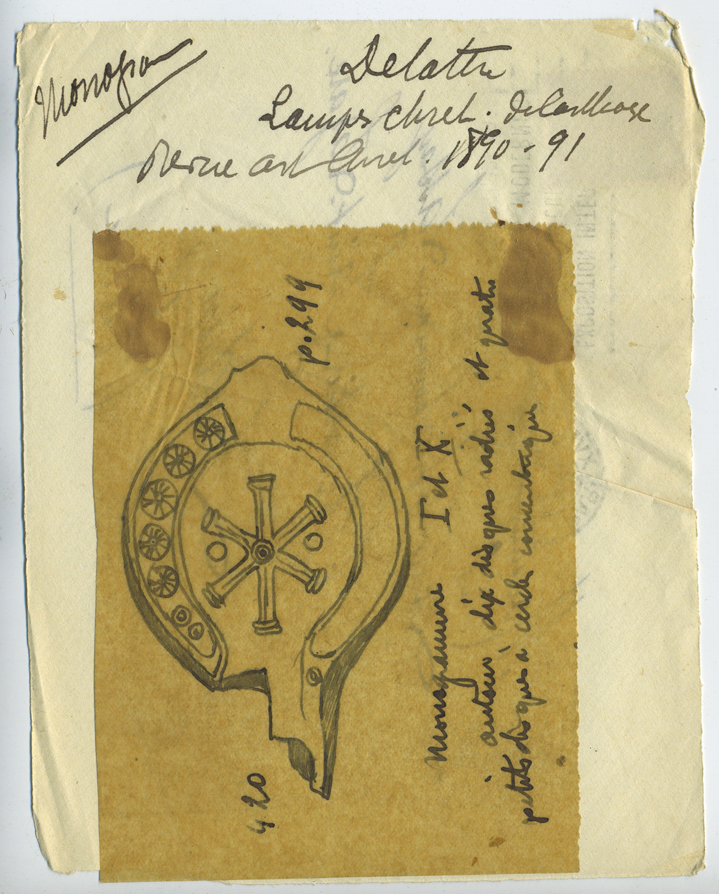 Monogram
Delattre
Lampes chret. de Carthage
Revue art chret. 1890-91
p. 299
420
Monogramme I et X
autour dix disques radiés et quatre
petits disques à cercle concentrique
EXPOSITION INTER